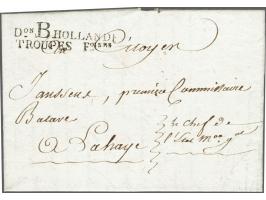 Don B HOLLANDE
TROUPES Fçises
Citoyen
Janssens, premier Commissaire
Batave
a Lahaye